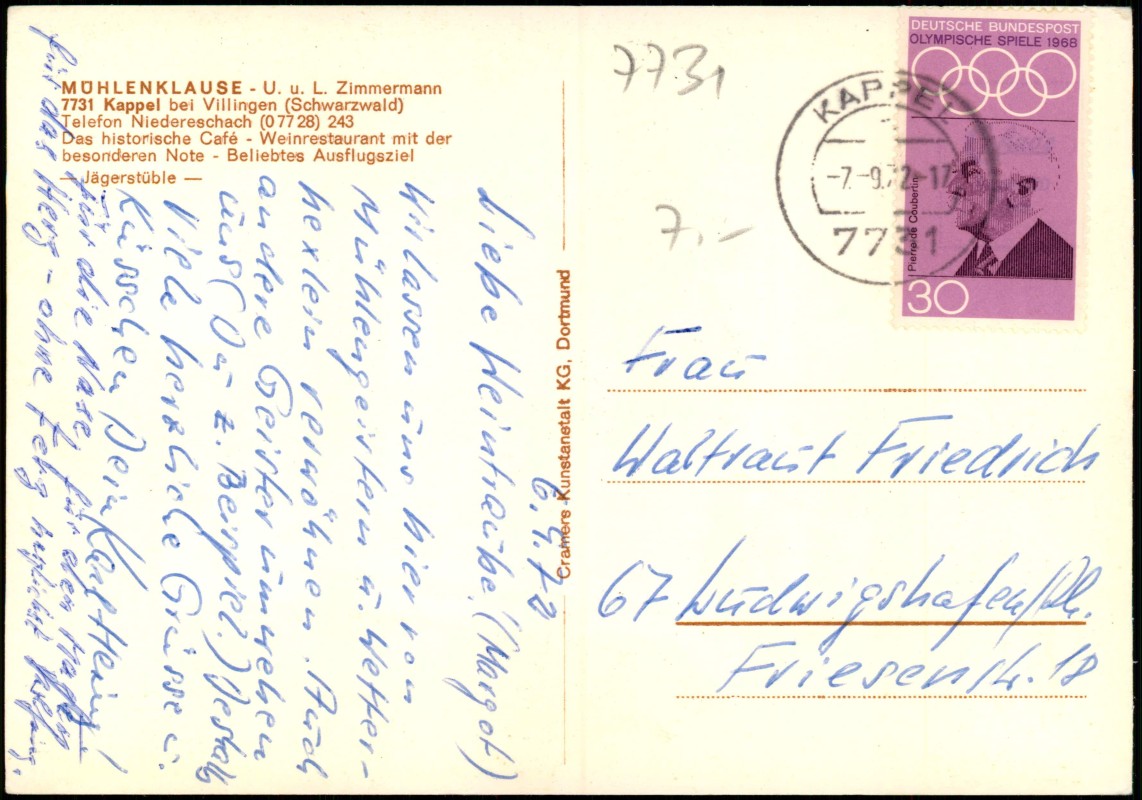 MÜHLENKLAUSE - U. u. L. Zimmermann
7731 Kappel bei Villingen (Schwarzwald)
Telefon Niedereschach (0 77 28) 243
Das historische Café - Weinrestaurant mit der
besonderen Note - Beliebtes Ausflugsziel
— Jägerstüble —
6.9.72
Liebe Weintraube, (Margot)
Wir lassen uns hier von
Mühlengeistern u. Wetter-
hexlein verwöhnen. Auch
andere Geister umwehen
uns (Du z. Beispiel.) Deshalb
Viele herzliche Grüsse u.
Küsschen Dein Karl Heinz!
Für die Nase, für den Magen
für das Herz - ohne
Cramers Kunstanstalt KG, Dortmund
7731
7.-
DEUTSCHE BUNDESPOST
OLYMPISCHE SPIELE 1968
Pierre de Coubertin
30
KAPPEL
-7.-9.72-17
7731
Frau
Waltraut Friedrich
67 Ludwigshafen/Rh.
Friesenstr. 18